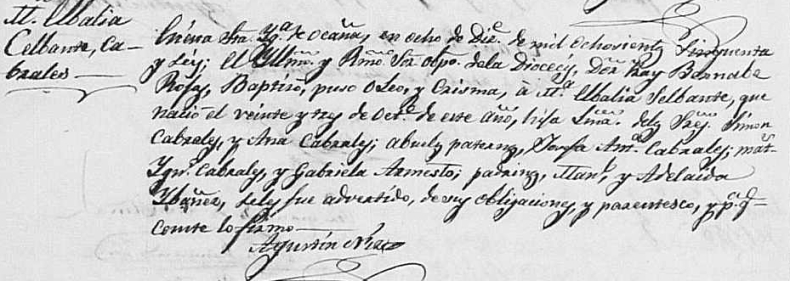 M. Ulbalia
Celbante, Ca-
brales
En esta Yga. de Ocaña, en ocho de Dice. de mil ochocients. Sinquenta
y seis; el Ylltmo. y Rmo. Sor. Obpo. de la Diocecis, Don Fray Bernabe
Rojas, Baptizó, puso oleo, y Crisma, á Ma. Ulbalia Selbante, que
nació el veinte y tres de Octe. de este año, hija Lma. de los Sres. Simon
Cabrales, y Ana Cabrales; abuelos paternos, Josefa Anta. Cabrales; mats.
Ygno. Cabrales, y Gabriela Armesto; padrinos, Manl. y Adelaida
Ybañez, se les fue advertido, de sus obligaciones, y parentesco, y pa. q.
conste lo firmo
Agustin Nieto